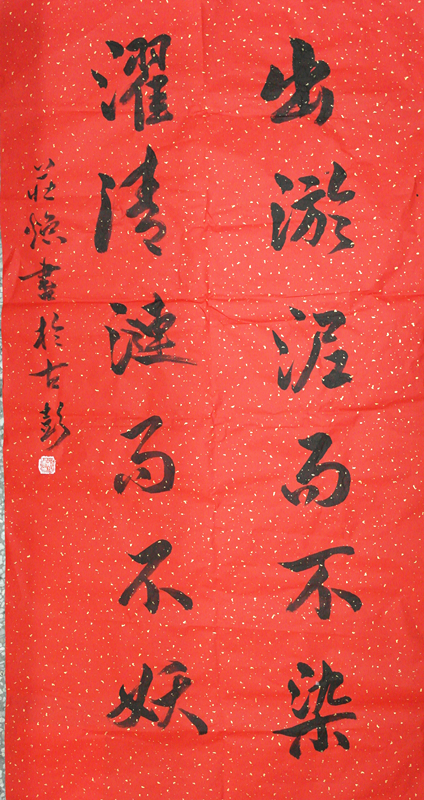 出淤泥而不染
濯清漣而不妖
莊焕書於古彭